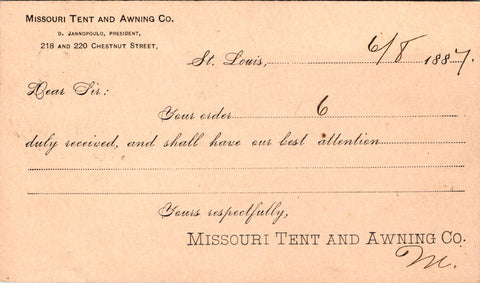 MISSOURI TENT AND AWNING CO.
D. JANNOPOULO, PRESIDENT,
218 AND 220 CHESTNUT STREET,
St. Louis, 6/8 1887.
Dear Sir:
Your order 6
duly received, and shall have our best attention
Yours respectfully,
MISSOURI TENT AND AWNING CO.
M.